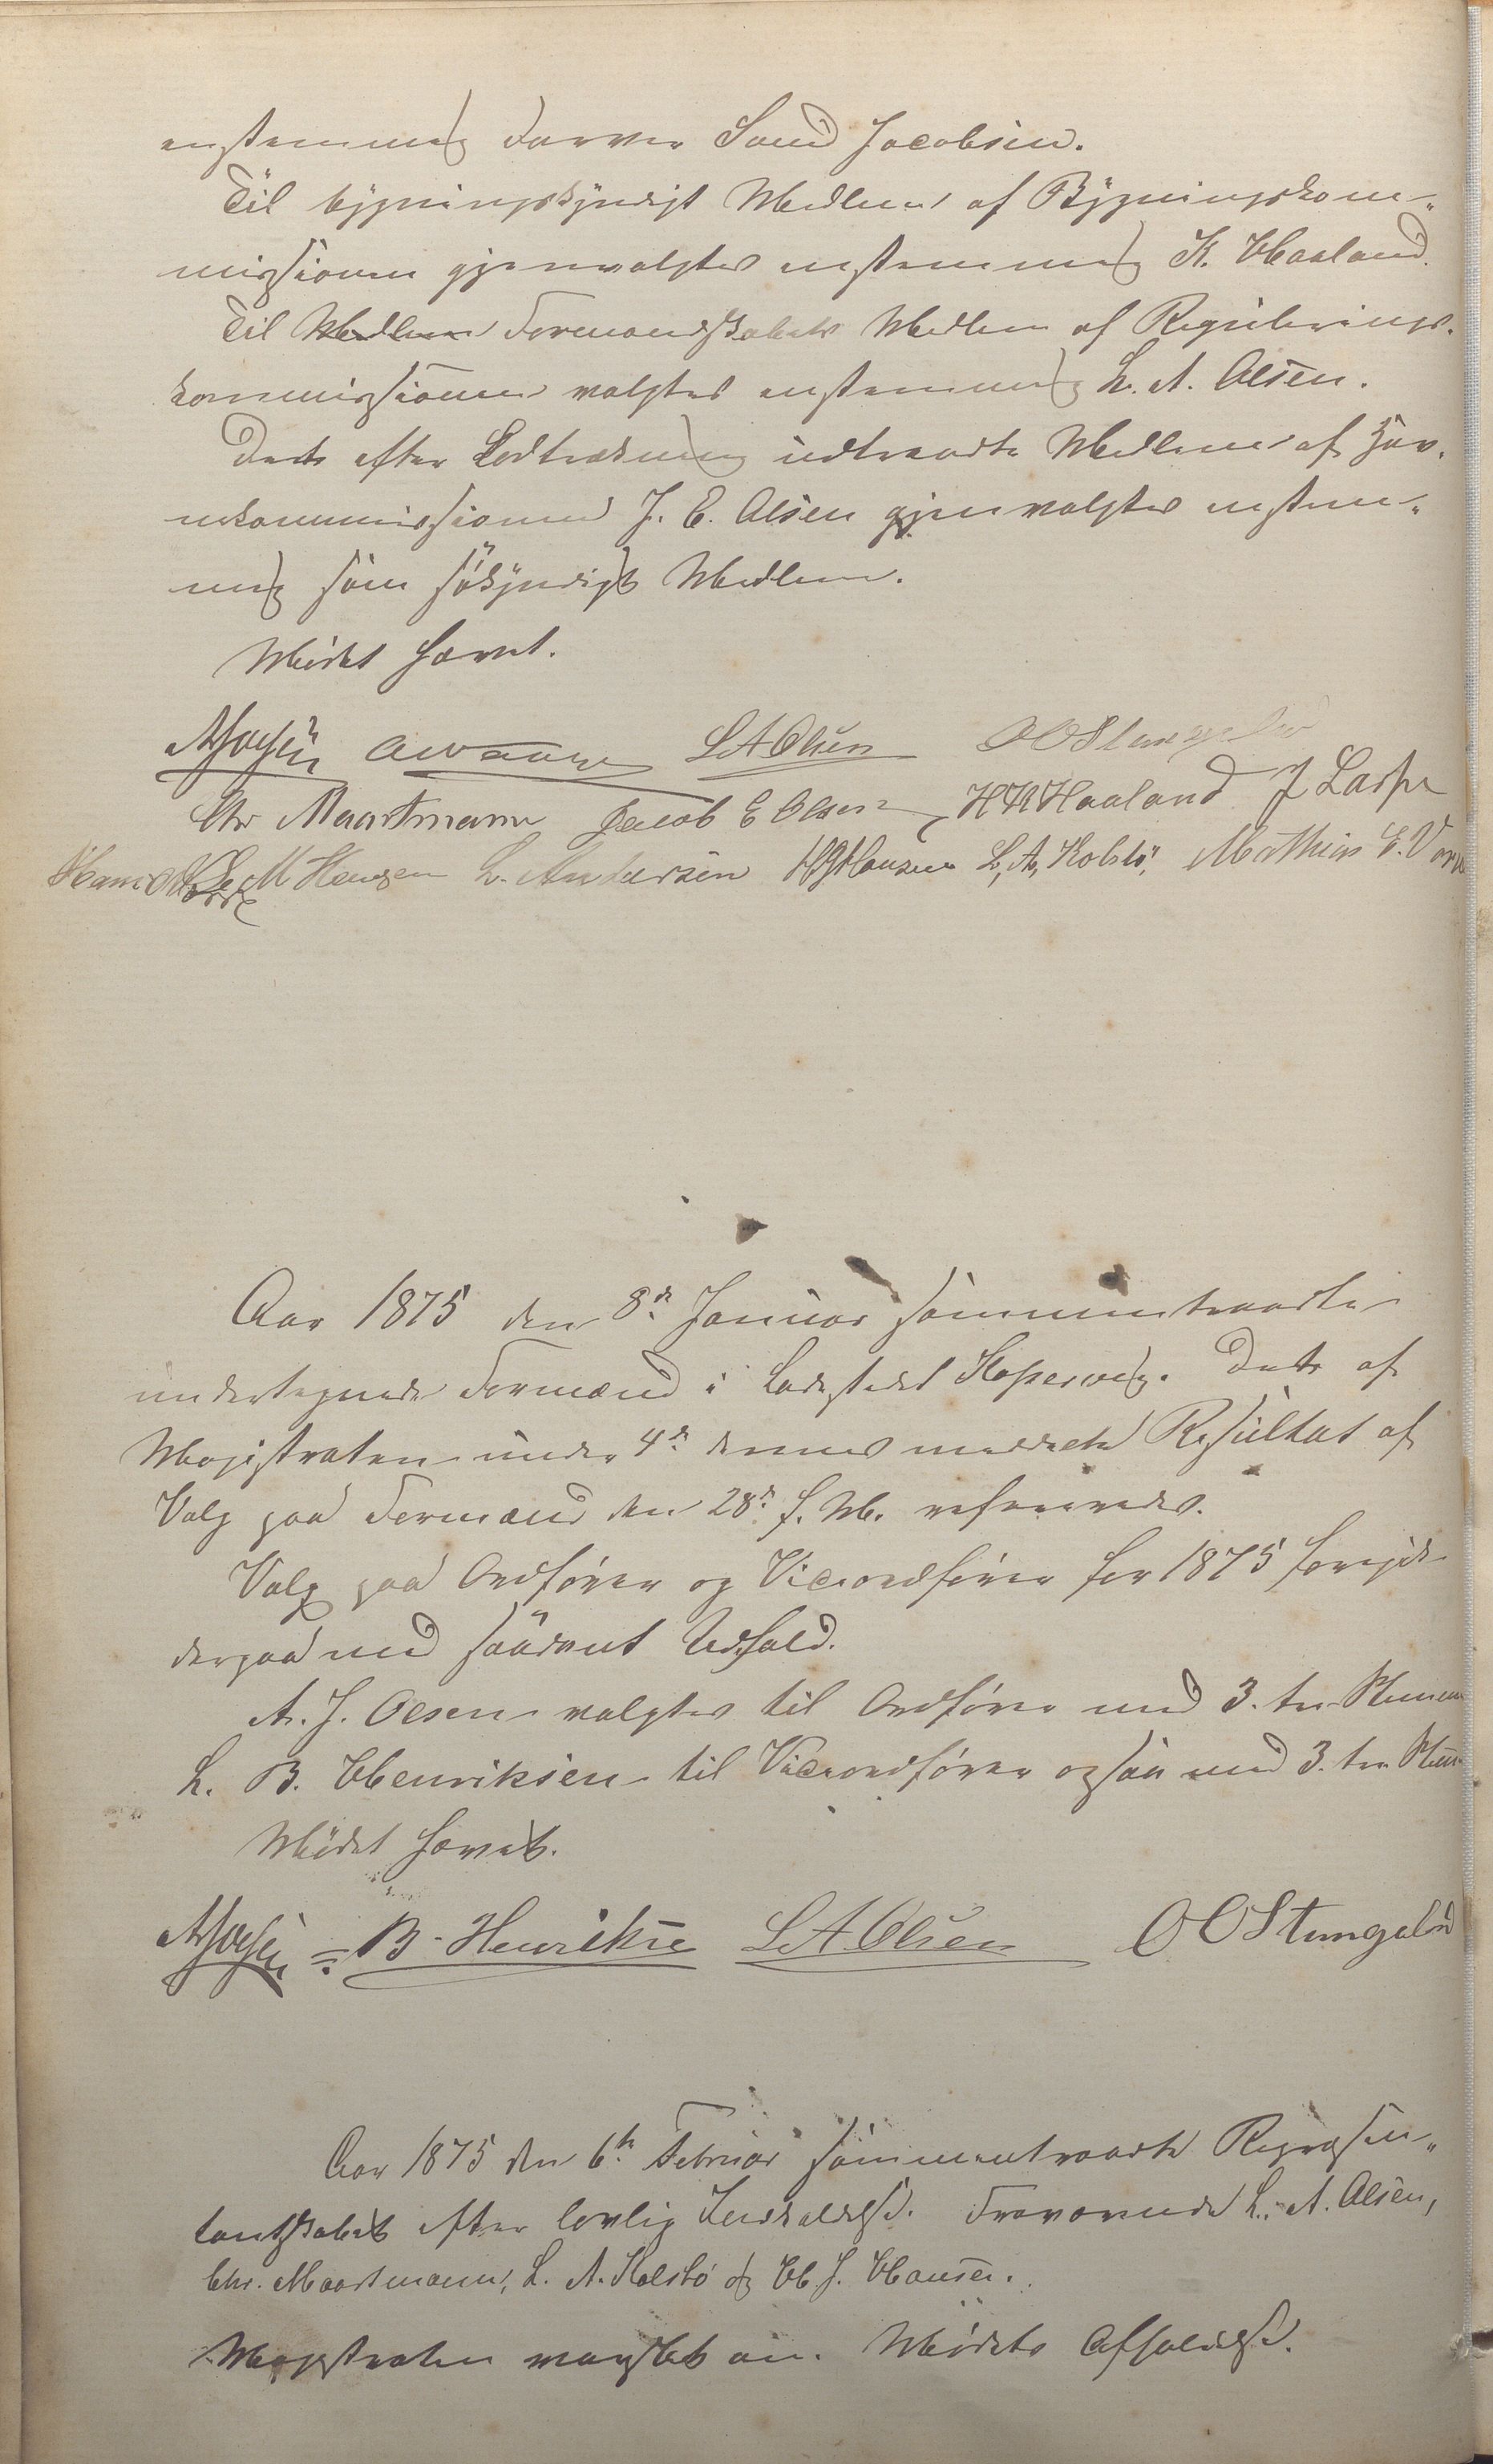 enstemmig Farver Sand Jacobsen.
Til bygningskyndigt Medlem af Bygningskom-
missionen gjenvalgtes enstemmig K. Haaland.
Til Medlem Formandskabets Medlem af Regulerings-
kommissionen valgtes enstemmig L. A. Olsen.
Dets efter Lodtrækning udtraadte Medlem af Hav-
nekommissionen J. E. Olsen gjenvalgtes enstem-
mig som søkyndigt Medlem.
Mødet hævet.
L A Olsen O O Stangeland
Chr Maartmann Jacob E Olsen H K Haaland J Larsen
M Hansen L. Andersen H J Hansen L. A. Kolstø, Mathias E.
Aar 1875 den 8de Januar sammentraadte
undertegnede Formænd i Ladestedet Kopervig. Dets af
Magistraten under 4de dennes meddelte Resultat af
Valg paa Formænd den 28de f. M. refereredes.
Valg paa Ordfører og Viceordfører for 1875 foregik
derpaa med saadant Udfald.
A. J. Olsen valgtes til Ordfører med 3. tre Stemmer
L. B. Henriksen til Viceordfører ogsaa med 3. tre Stem.
Mødet hævet.
B. Henriksen L A Olsen O O Stangeland
Aar 1875 den 6te Februar sammentraadte Repræsen-
tantskabet efter lovlig Indkaldelse. Fraværende L. A. Olsen,
Chr. Maartmann, L. A. Kolstø og H. J. Hansen.
Magistraten mødte ei. Mødets Afholdelse.